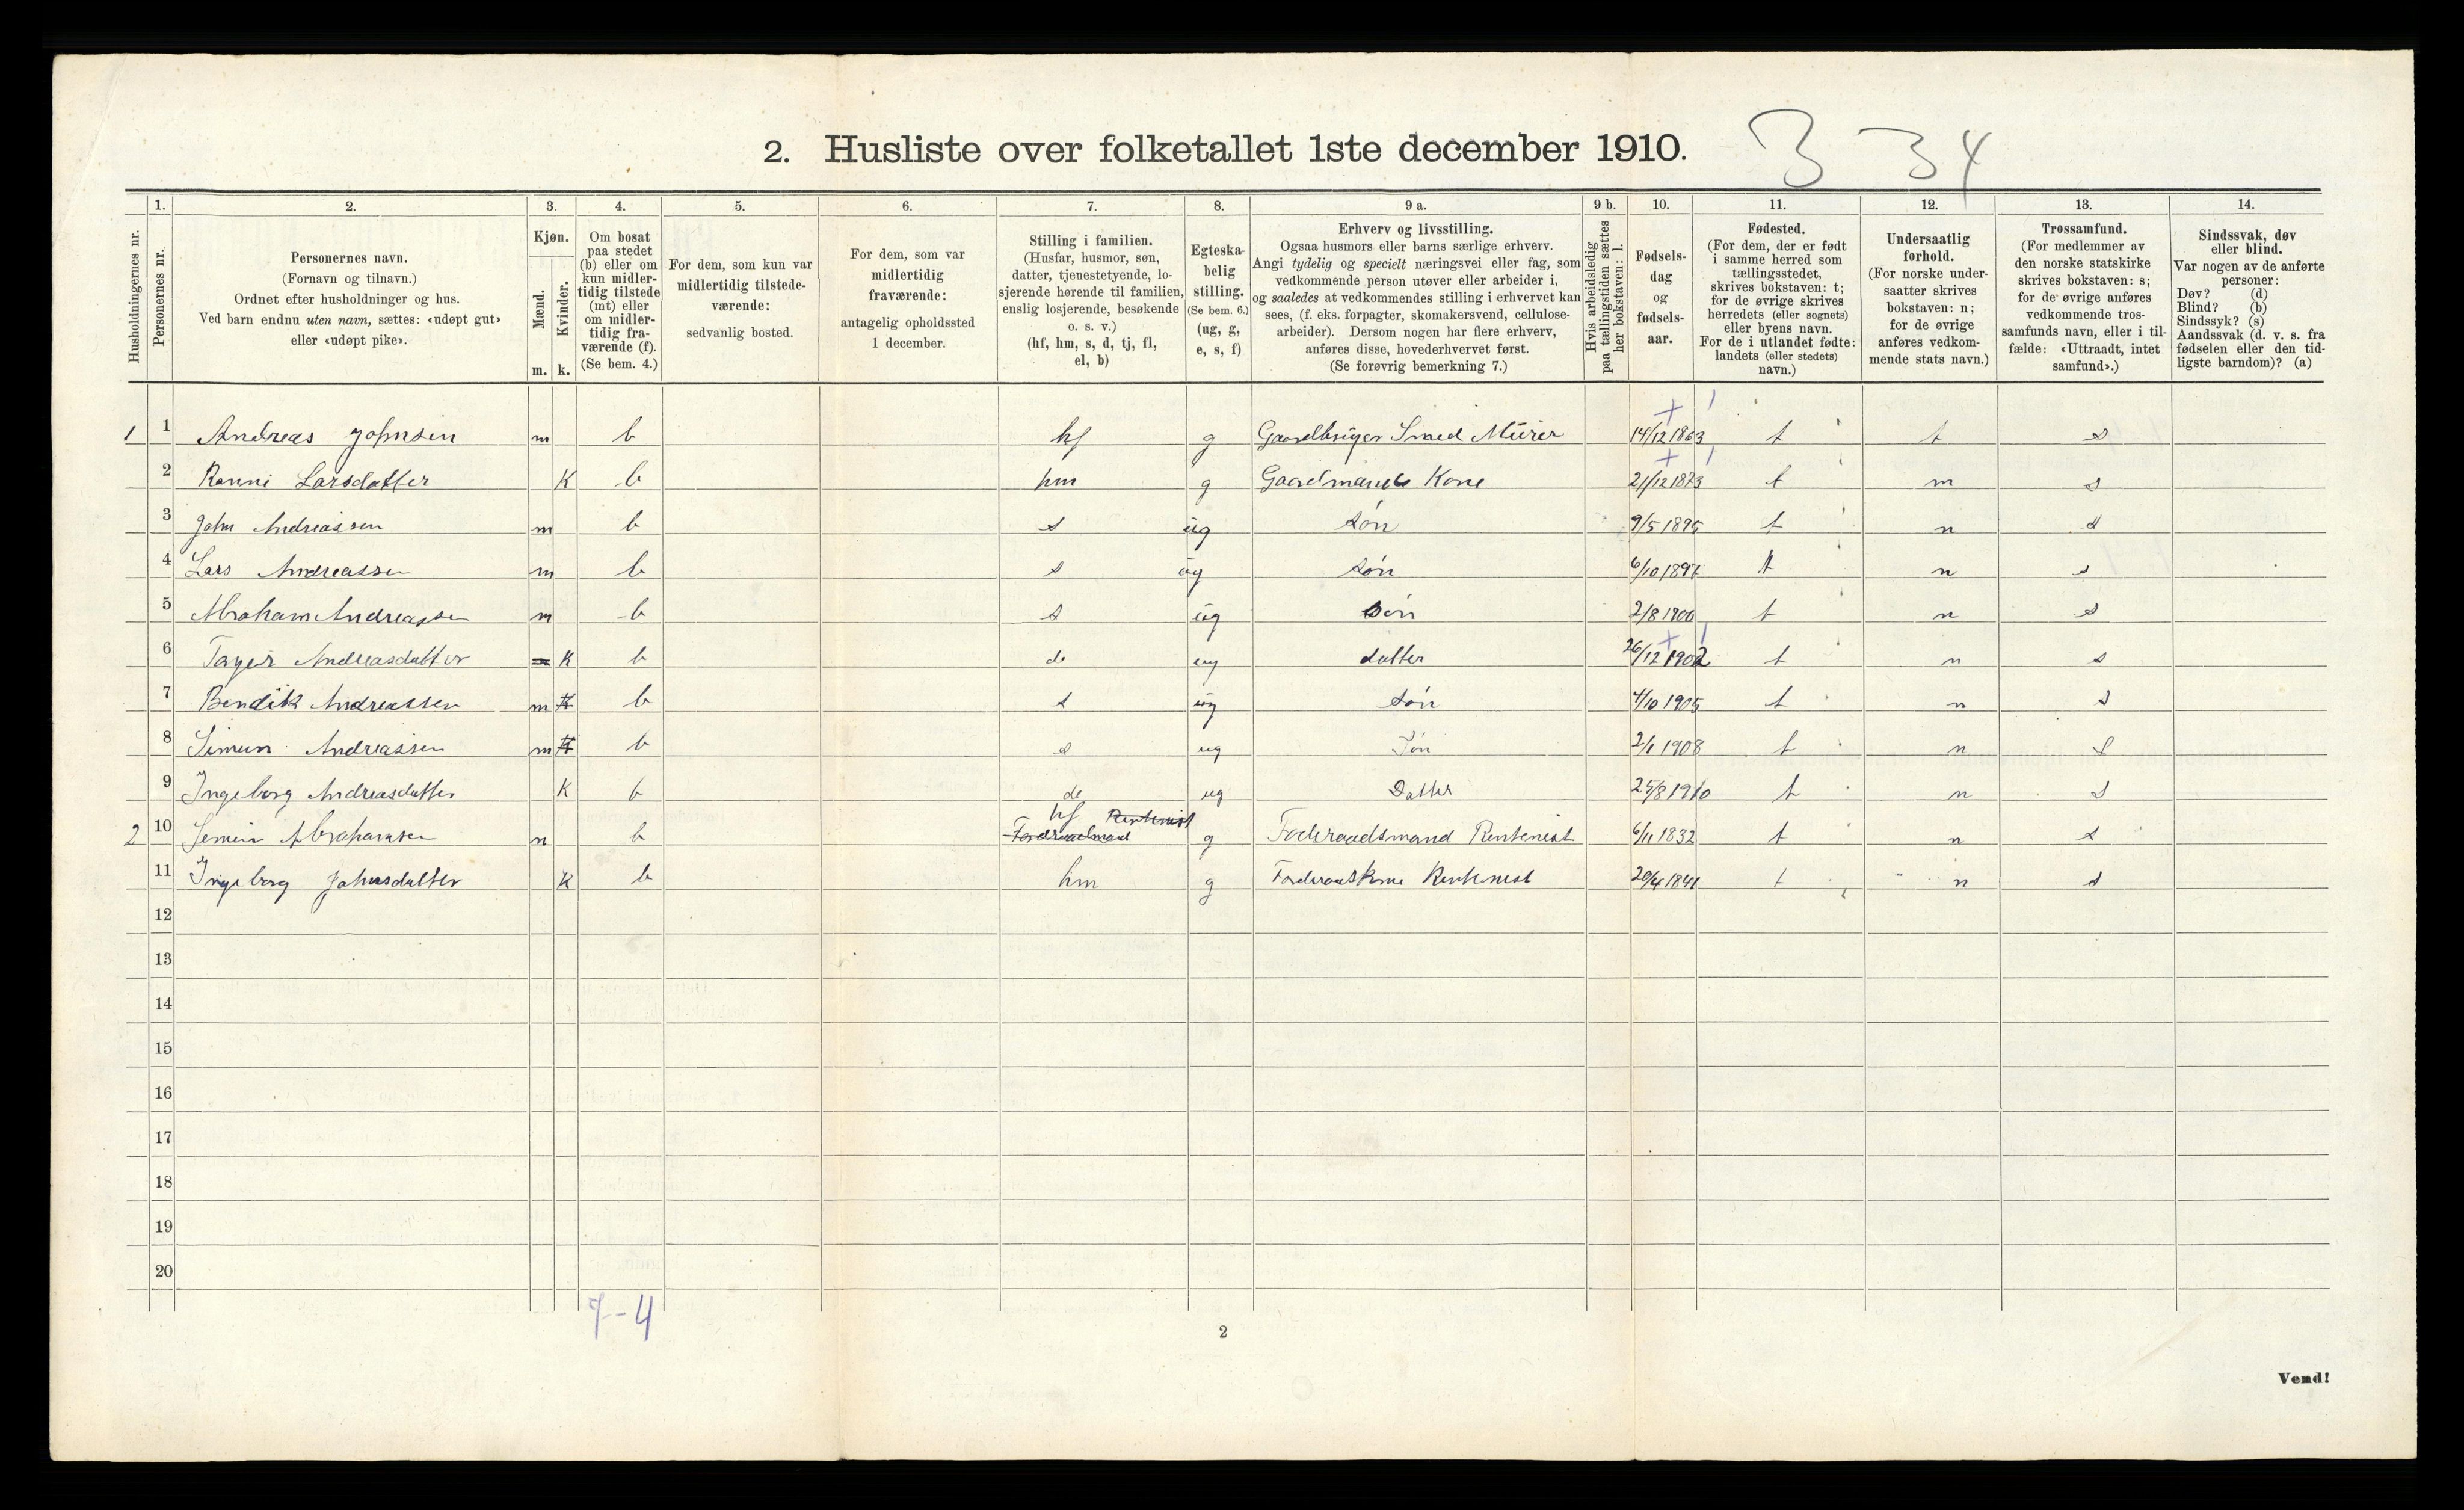 2. Husliste over folketallet 1ste december 1910.
3 34
Husholdningernes nr.
1.
Personernes nr.
2.
Personernes navn.
(Fornavn og tilnavn.)
Ordnet efter husholdninger og hus.
Ved barn endnu uten navn, sættes: «udøpt gut»
eller «udøpt pike».
3.
Kjøn.
Mænd.
Kvinder.
m. k.
4.
Om bosat
paa stedet
(b) eller om
kun midler-
tidig tilstede
(mt) eller
om midler-
tidig fra-
værende (f).
(Se bem. 4.)
5.
For dem, som kun var
midlertidig tilstede-
værende:
sedvanlig bosted.
6.
For dem, som var
midlertidig
fraværende:
antagelig opholdssted
1 december.
7.
Stilling i familien.
(Husfar, husmor, søn,
datter, tjenestetyende, lo-
sjerende hørende til familien,
enslig losjerende, besøkende
o. s. v.)
(hf, hm, s, d, tj, fl,
el, b)
8.
Egteska-
belig
stilling.
(Se bem. 6.)
(ug, g,
e, s, f)
9 a.
Erhverv og livsstilling.
Ogsaa husmors eller barns særlige erhverv.
Angi tydelig og specielt næringsvei eller fag, som
vedkommende person utøver eller arbeider i,
og saaledes at vedkommendes stilling i erhvervet kan
sees, (f. eks. forpagter, skomakersvend, cellulose-
arbeider). Dersom nogen har flere erhverv,
anføres disse, hovederhvervet først.
(Se forøvrig bemerkning 7.)
9 b.
Hvis arbeidsledig
paa tællingstiden sættes
her bokstaven: l.
10.
Fødsels-
dag
og
fødsels-
aar.
11.
Fødested.
(For dem, der er født
i samme herred som
tællingsstedet,
skrives bokstaven: t;
for de øvrige skrives
herredets (eller sognets)
eller byens navn.
For de i utlandet fødte:
landets (eller stedets)
navn.)
12.
Undersaatlig
forhold.
(For norske under-
saatter skrives
bokstaven: n;
for de øvrige
anføres vedkom-
mende stats navn.)
13.
Trossamfund.
(For medlemmer av
den norske statskirke
skrives bokstaven: s;
for de øvrige anføres
vedkommende tros-
samfunds navn, eller i til-
fælde: «Uttraadt, intet
samfund».)
14.
Sindssvak, døv
eller blind.
Var nogen av de anførte
personer:
Døv? (d)
Blind? (b)
Sindssyk? (s)
Aandssvak (d. v. s. fra
fødselen eller den tid-
ligste barndom)? (a)
1 1 Andreas Johnsen m b hf g Gaardbruger Smed Mürer 14/12 1863 t t s
2 Ranni Larsdatter K b hm g Gaardmands Kone 21/12 1873 t n s
3 John Andreassen m b s ug søn 9/5 1895 t n s
4 Lars Andreassen m b s ug søn 6/10 1897 t n s
5 Abraham Andreassen m b s ug søn 2/8 1900 t n s
6 Andreasdatter K b da ug datter 26/12 1902 t n s
7 Bendik Andreassen m b s ug søn 4/10 1905 t n s
8 Simun Andreassen m b s ug Søn 2/1 1908 t n s
9 Ingeborg Andreasdatter K b da ug Datter 25/8 1910 t n s
2 10 Abrahamsen m b hf Rentenist Foderaadmand g Foderaadsmand Rentenist 6/11 1832 t n s
11 Ingeborg Johnsdatter K b hm g Foderaadskone Rentenist 20/4 1841 t n s
12
13
14
15
16
17
18
19
20
7-4
2
Vend!